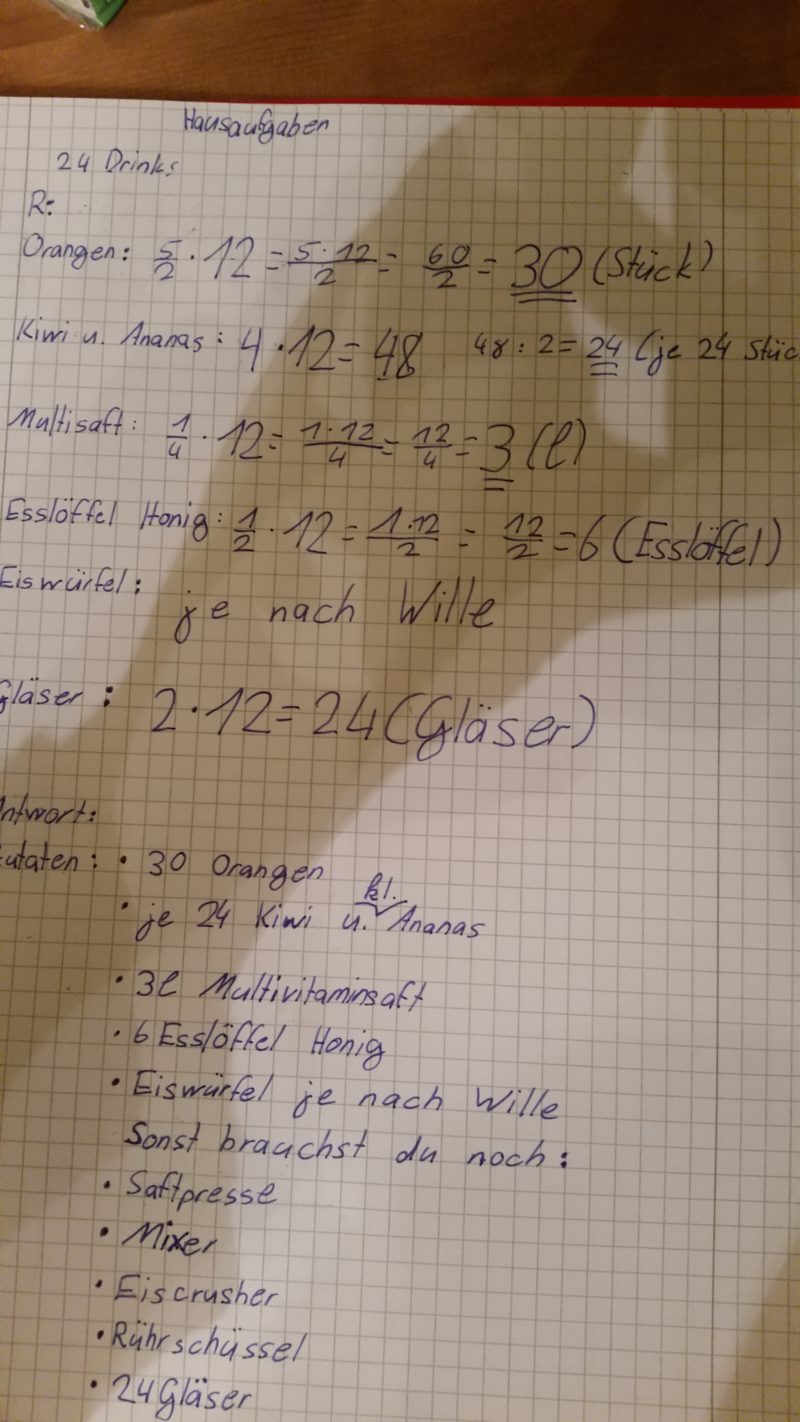 Hausaufgaben
24 Drinks
R:
Orangen: 5/2 · 12 = 5·12/2 = 60/2 = 30 (Stück)
Kiwi u. Ananas: 4 · 12 = 48 48 : 2 = 24 (je 24 Stüc
Multisaft: 1/4 · 12 = 1·12/4 = 12/4 = 3 (l)
Esslöffel Honig: 1/2 · 12 = 1·12/2 = 12/2 = 6 (Esslöffel)
Eiswürfel: je nach Wille
Gläser: 2 · 12 = 24 (Gläser)
Antwort:
Zutaten: • 30 Orangen
• je 24 Kiwi u. kl. Ananas
• 3l Multivitaminsaft
• 6 Esslöffel Honig
• Eiswürfel je nach Wille
Sonst brauchst du noch:
• Saftpresse
• Mixer
• Eiscrusher
• Rührschüssel
• 24 Gläser